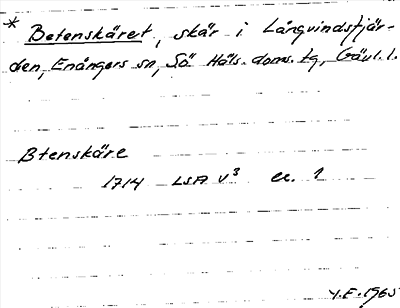 * Betenskäret, skär i Långvindsfjär-
den, Enångers sn, Sö Häls. doms. tg, Gävl. l.
Btenskäre
1714 LSA V³ 1
Y.F. 1965